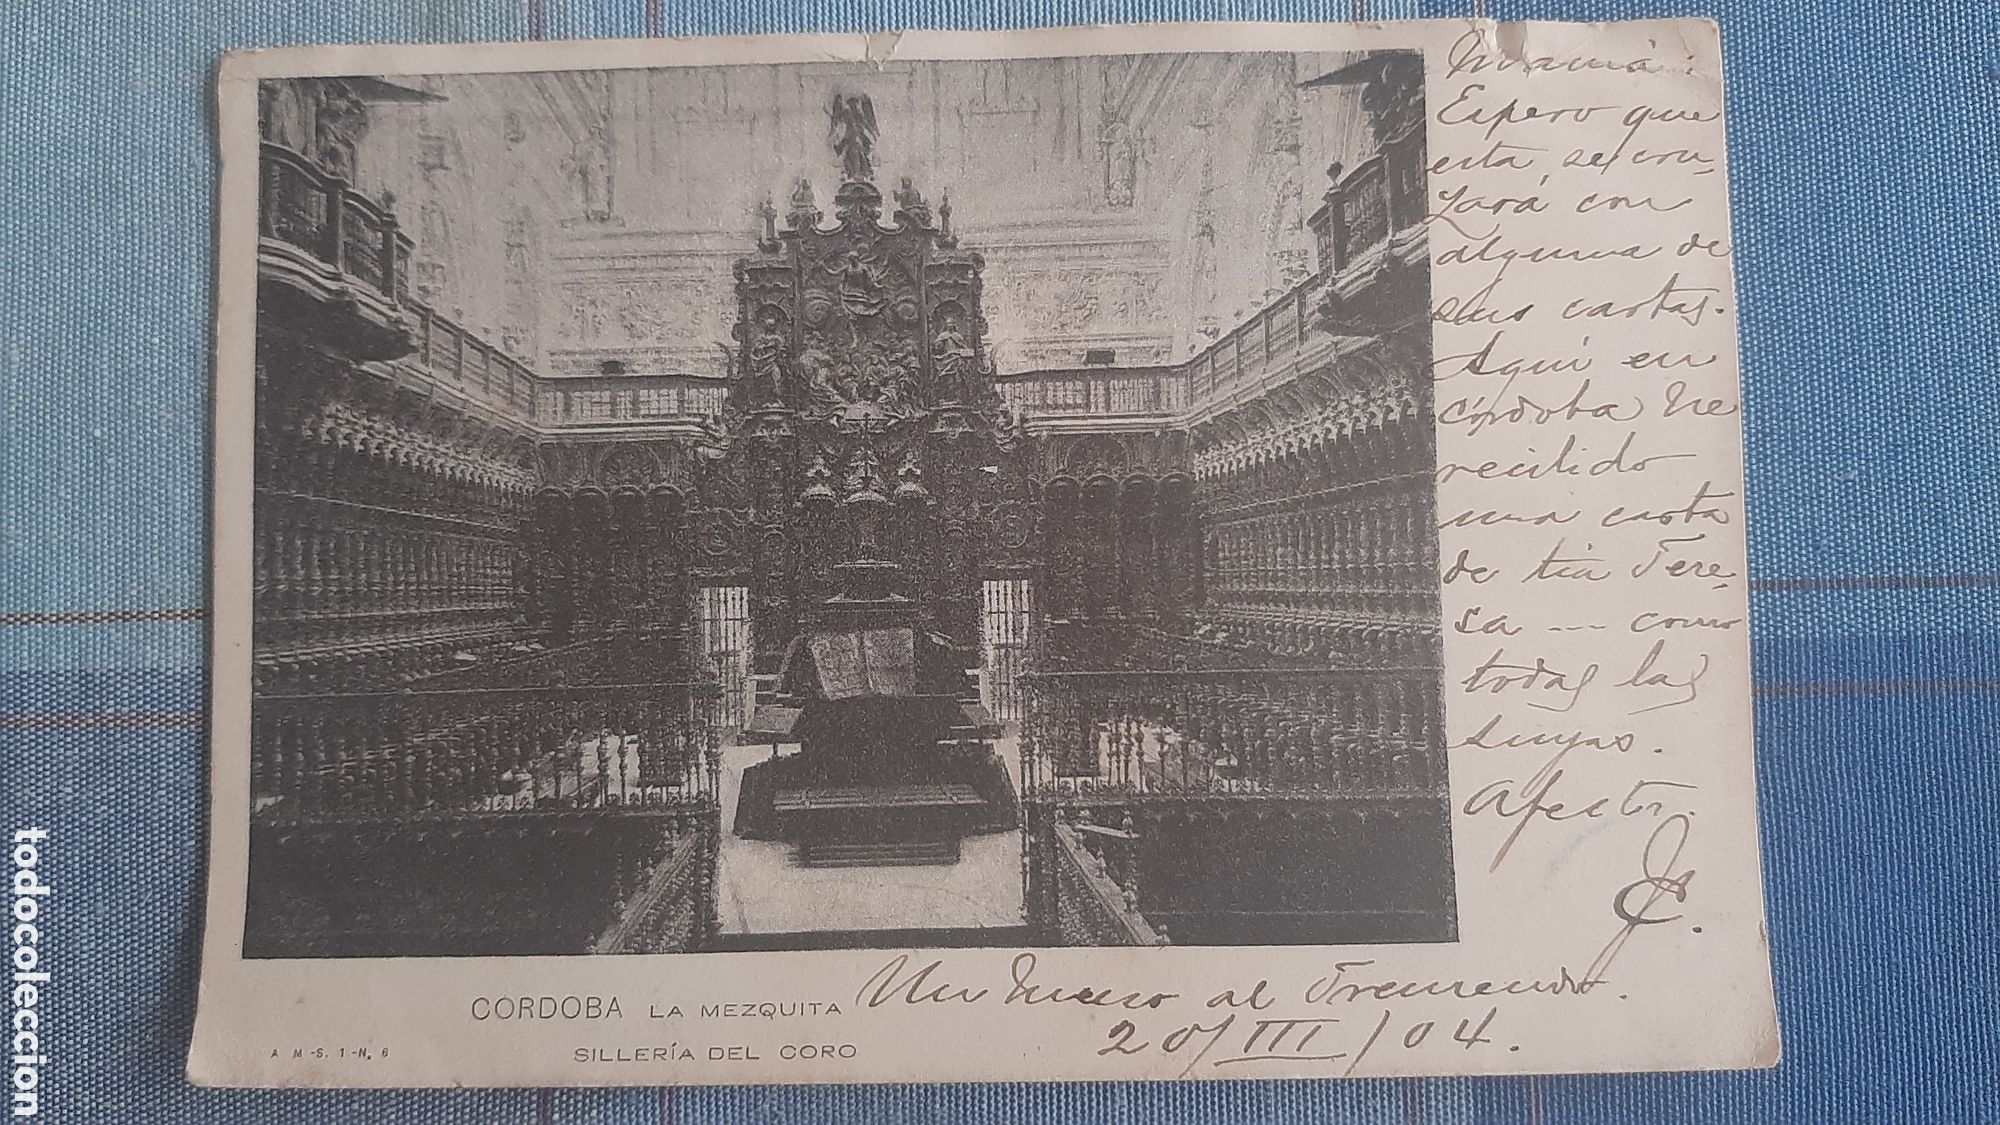 Mamá:
Espero que
esta se cru-
zará con
alguna de
sus cartas.
Aquí en
Córdoba he
recibido
una carta
de tia Tere-
sa --- como
todas las
suyas.
Afecto.
Un beso al Tremendo.
20/III/04.
CÓRDOBA LA MEZQUITA
SILLERÍA DEL CORO
A M-S. 1-N. 6
todocoleccion